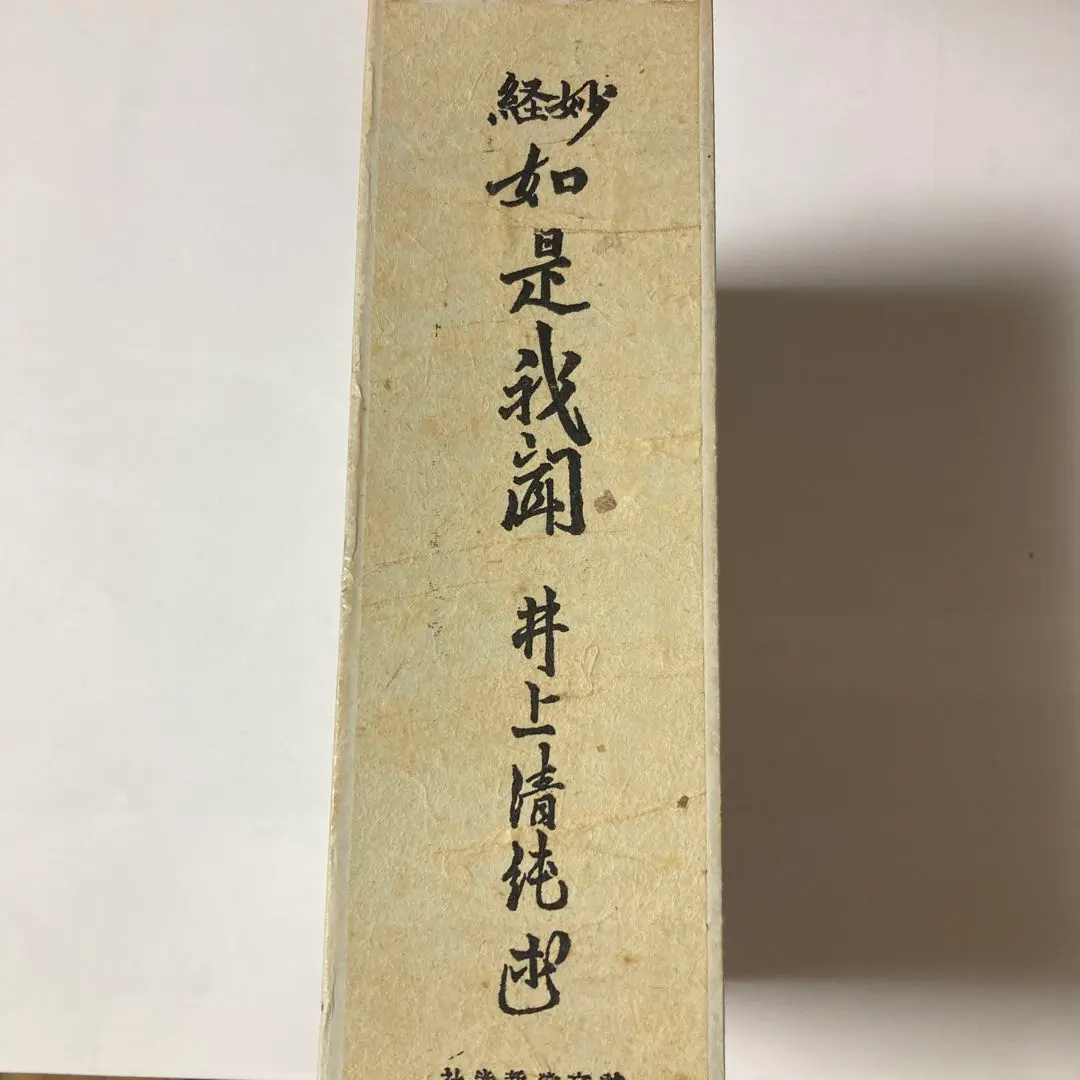 妙経
如是我聞 井上清純述